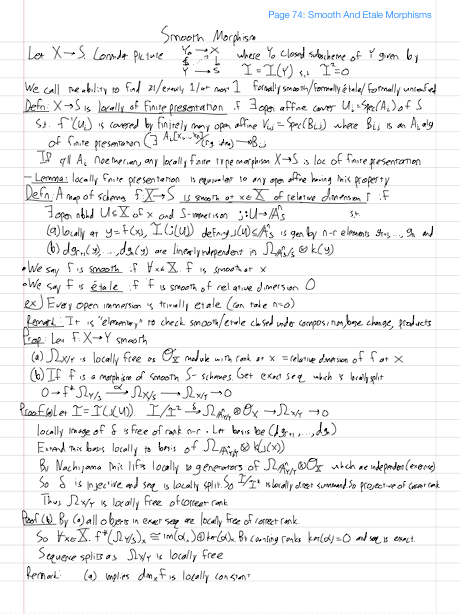 Page 74: Smooth And Etale Morphisms
Smooth Morphism
Let X→S. Consider Picture Y₀→X where Y₀ closed subscheme of Y given by
Y→S I=I(Y) s.t. I²=0
We call the ability to find ≥1/exactly 1/at most 1 formally smooth/formally étale/formally unramified
Defn: X→S is locally of finite presentation if ∃ open affine cover Uᵢ=Spec(Aᵢ) of S
s.t. f⁻¹(Uᵢ) is covered by finitely many open affine Vᵢⱼ=Spec(Bᵢⱼ) where Bᵢⱼ is an Aᵢ alg
of finite presentation
If all Aᵢ Noetherian, any locally finite type morphism X→S is loc of finite presentation
- Lemma: locally finite presentation is equivalent to any open affine having this property
Defn: A map of schemes f:X→S is smooth at x∈X of relative dimension r if
∃ open nbhd U⊆X of x and S-immersion j:U→Aⁿₛ s.t.
(a) locally at y=j(x), I(j(U)) defining j(U)⊆Aⁿₛ is gen by n-r elements gᵣ₊₁,..., gₙ and
(b) dgᵣ₊₁(y),...,dgₙ(y) are linearly independent in Ω_Aⁿₛ/S ⊗ k(y)
• We say f is smooth if ∀x∈X. f is smooth at x
• We say f is étale if f is smooth of relative dimension 0
ex) Every open immersion is trivially etale (can take n=0)
Remark: It is "elementary" to check smooth/etale closed under composition, base change, products
Prop: Let f:X→Y smooth
(a) Ω_X/Y is locally free as O_X module with rank at x = relative dimension of f at x
(b) If f is a morphism of smooth S-schemes. Get exact seq which is locally split
0→f*Ω_Y/S →α Ω_X/S→Ω_X/Y→0
Proof (a) Let I=I(j(U)). I/I² →δ Ω_Aⁿ_Y/Y ⊗ O_X→Ω_X/Y→0
locally image of δ is free of rank n-r. Let basis be (dgᵣ₊₁,...,dgₙ)
Extend this basis locally to basis of Ω_Aⁿ_Y/Y ⊗ k(j(x))
By Nakayama this lifts locally to generators of Ω_Aⁿ_Y/Y ⊗ O_X which are independent (exercise)
So δ is injective and seq. is locally split. So I/I² is locally direct summand. So projective of correct rank
Thus Ω_X/Y is locally free of correct rank
Proof (b) By (a) all objects in exact seq are locally free of correct rank.
So ∀x∈X. f*(Ω_Y/S)ₓ ≅ im(αₓ)⊕ker(αₓ). By counting ranks ker(α)=0 and seq is exact.
Sequence splits as Ω_X/Y is locally free
Remark: (a) implies dimₓf is locally constant